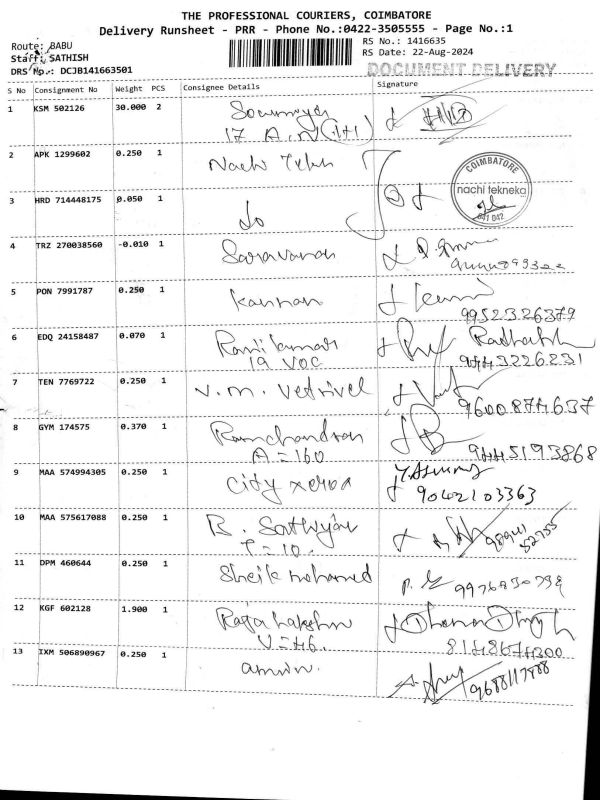 THE PROFESSIONAL COURIERS, COIMBATORE
Delivery Runsheet - PRR - Phone No.:0422-3505555 - Page No.:1
Route: BABU
RS No.: 1416635
Staff: SATHISH
RS Date: 22-Aug-2024
DRS No.: DCJB141663501
DOCUMENT DELIVERY
S No Consignment No Weight PCS Consignee Details Signature
1 KSM 502126 30.000 2 Soumaya
17 A.N (1+1)
2 APK 1299602 0.250 1 Nachi
COIMBATORE
nachi tekneka
641 042
3 HRD 714448175 0.050 1 do
4 TRZ 270038560 -0.010 1 Saravanan
5 PON 7991787 0.250 1 Kannan
9952326379
6 EDQ 24158487 0.070 1 Ramkumar
19 VOC
9443226231
7 TEN 7769722 0.250 1 V.M. Vetrivel
9600874637
8 GYM 174575 0.370 1 Ramchandran
A=160
9445193868
9 MAA 574994305 0.250 1 City xerox
9042103363
10 MAA 575617088 0.250 1 B. Sathiyan
T=10.
11 DPM 460644 0.250 1 Sheik mohamed
12 KGF 602128 1.900 1 Rajalakshmi
V=46.
13 IXM 506890967 0.250 1 amman.
9688117988